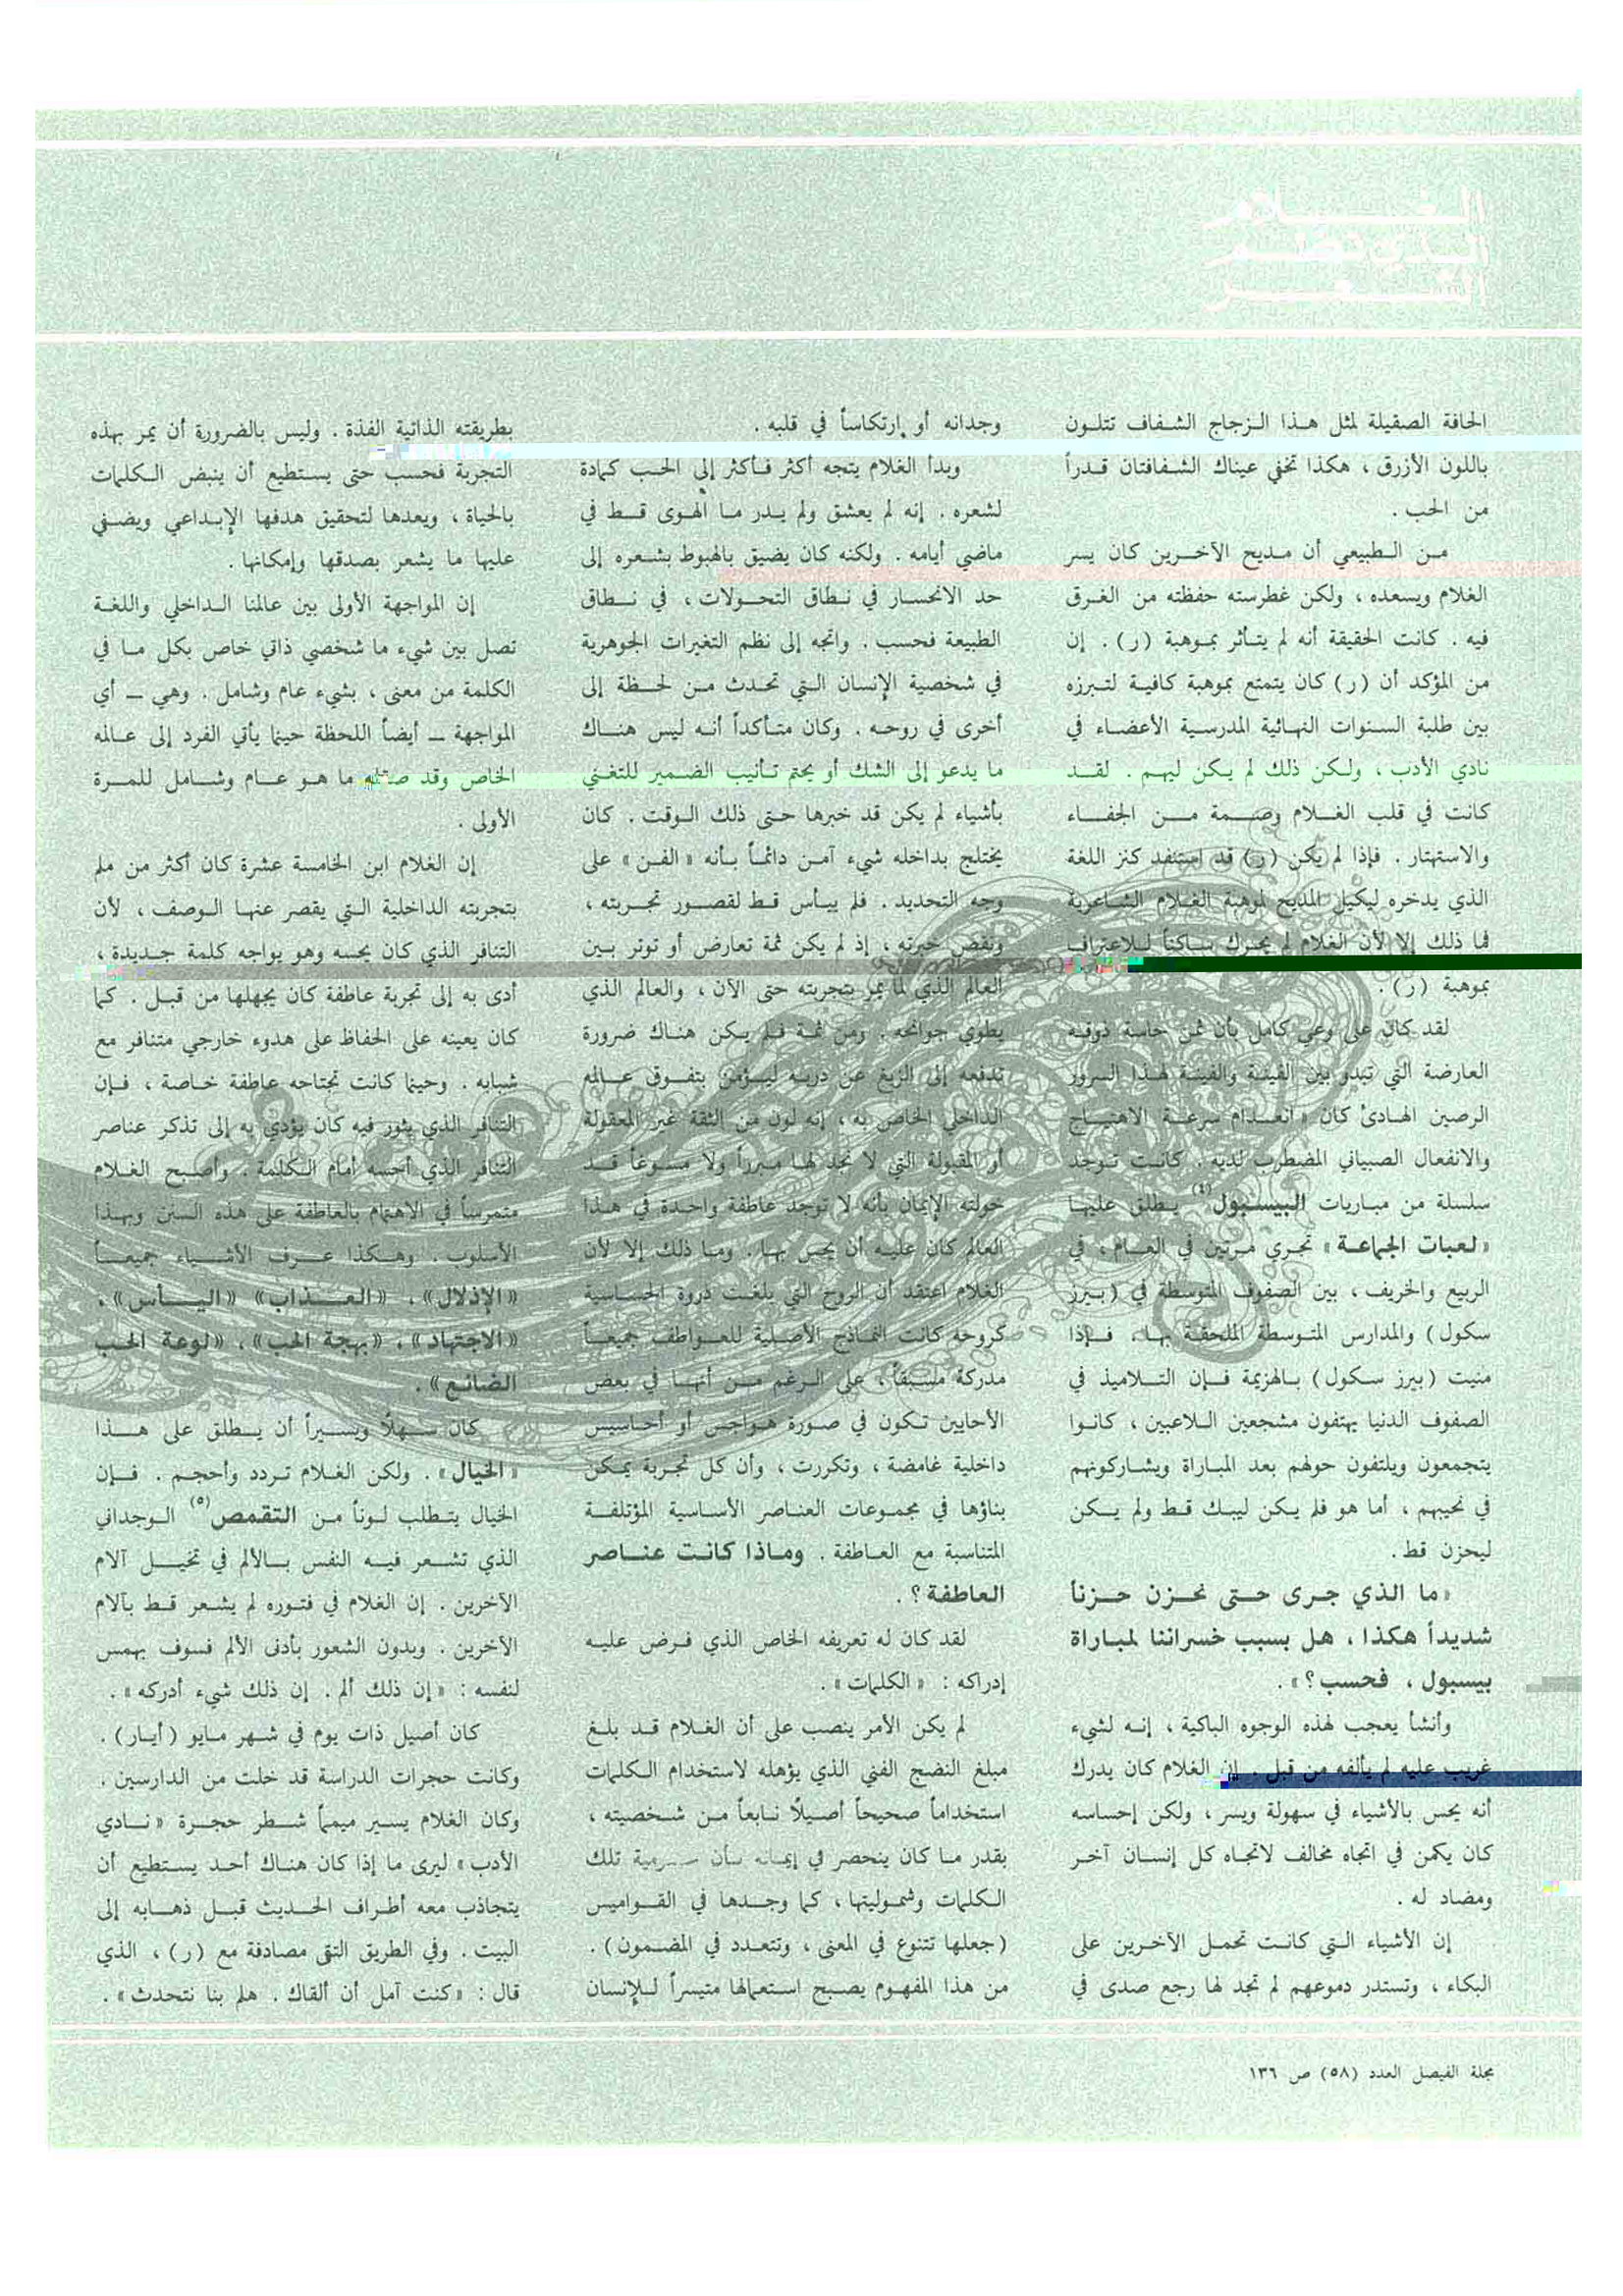 الغلام
الذي نظم
الشعر
الحافة الصقيلة لمثل هذا الزجاج الشفاف تتلون
باللون الأزرق ، هكذا تخفي عيناك الشفافتان قدراً
من الحب .
من الطبيعي أن مديح الآخرين كان يسر
الغلام ويسعده ، ولكن غطرسته حفظته من الغرق
فيه . كانت الحقيقة أنه لم يتأثر بموهبة (ر) . إن
من المؤكد أن (ر) كان يتمتع بموهبة كافية لتبرزه
بين طلبة السنوات النهائية المدرسية الأعضاء في
نادي الأدب ، ولكن ذلك لم يكن ليهم . لقد
كانت في قلب الغلام وصمة من الجفاء
والاستهتار . فإذا لم يكن (ر) قد استنفد كنز اللغة
الذي يدخره ليكيل المديح لموهبة الغلام الشاعرية
فما ذلك إلا لأن الغلام لم يحرك ساكناً للاعتراف
بموهبة (ر) .
لقد كان على وعي كامل بأن ثمن حاسة ذوقه
العارضة التي تبدو بين الفينة والفينة لهذا السرور
الرصين الهادئ كان « انعدام سرعة الاهتياج
والانفعال الصبياني المضطرب لديه . كانت توجد
سلسلة من مباريات البيسبول (٤) يطلق عليها
« لعبات الجماعة » تجري مرتين في العام ، في
الربيع والخريف ، بين الصفوف المتوسطة في (بيرز
سكول) والمدارس المتوسطة الملحقة بها ، فإذا
منيت (بيرز سكول) بالهزيمة فإن التلاميذ في
الصفوف الدنيا يهتفون مشجعين اللاعبين ، كانوا
يتجمعون ويلتفون حولهم بعد المباراة ويشاركونهم
في نحيبهم ، أما هو فلم يكن ليبك قط ولم يكن
ليحزن قط .
« ما الذي جرى حتى نحزن حزناً
شديداً هكذا ، هل بسبب خسراننا لمباراة
بيسبول ، فحسب ؟ » .
وأنشأ يعجب لهذه الوجوه الباكية ، إنه لشيء
غريب عليه لم يألفه من قبل . إن الغلام كان يدرك
أنه يحس بالأشياء في سهولة ويسر ، ولكن إحساسه
كان يكمن في اتجاه مخالف لاتجاه كل إنسان آخر
ومضاد له .
إن الأشياء التي كانت تحمل الآخرين على
البكاء ، وتستدر دموعهم لم تجد لها رجع صدى في
وجدانه أو إرتكاساً في قلبه .
وبدأ الغلام يتجه أكثر فأكثر إلى الحب كمادة
لشعره . إنه لم يعشق ولم يدر ما الهوى قط في
ماضي أيامه . ولكنه كان يضيق بالهبوط بشعره إلى
حد الانحسار في نطاق التحولات ، في نطاق
الطبيعة فحسب . واتجه إلى نظم التغيرات الجوهرية
في شخصية الإنسان التي تحدث من لحظة إلى
أخرى في روحه . وكان متأكداً أنه ليس هناك
ما يدعو إلى الشك أو يحتم تأنيب الضمير للتغني
بأشياء لم يكن قد خبرها حتى ذلك الوقت . كان
يختلج بداخله شيء آمن دائماً بأنه « الفن » على
وجه التحديد . فلم ييأس قط لقصور تجربته ،
ونقص خبرته ، إذ لم يكن ثمة تعارض أو توتر بين
العالم الذي لما يمر بتجربته حتى الآن ، والعالم الذي
يطوي جوانحه . ومن ثمة فلم يكن هناك ضرورة
تدفعه إلى الزيغ عن دربه ليؤمن بتفوق عالمه
الداخلي الخاص به ، إنه لون من الثقة غير المعقولة
أو المقبولة التي لا تجد لها مبرراً ولا مسوغاً قد
خولته الإيمان بأنه لا توجد عاطفة واحدة في هذا
العالم كان عليه أن يحس بها . وما ذلك إلا لأن
الغلام اعتقد أن الروح التي بلغت ذروة الحساسية
كروحه كانت النماذج الأصلية للعواطف جميعاً
مدركة مسبقاً ، على الرغم من أنها في بعض
الأحايين تكون في صورة هواجس أو أحاسيس
داخلية غامضة ، وتكررت ، وأن كل تجربة يمكن
بناؤها في مجموعات العناصر الأساسية المؤتلفة
المتناسبة مع العاطفة . وماذا كانت عناصر
العاطفة ؟ .
لقد كان له تعريفه الخاص الذي فرض عليه
إدراكه : « الكلمات » .
لم يكن الأمر ينصب على أن الغلام قد بلغ
مبلغ النضج الفني الذي يؤهله لاستخدام الكلمات
استخداماً صحيحاً أصيلاً نابعاً من شخصيته ،
بقدر ما كان ينحصر في إيمانه بأن تلك
الكلمات وشموليتها ، كما وجدها في القواميس
(جعلها تتنوع في المعنى ، وتتعدد في المضمون) .
من هذا المفهوم يصبح استعمالها متيسراً للإنسان
بطريقته الذاتية الفذة . وليس بالضرورة أن يمر بهذه
التجربة فحسب حتى يستطيع أن ينبض الكلمات
بالحياة ، ويعدها لتحقيق هدفها الإبداعي ويضفي
عليها ما يشعر بصدقها وإمكانها .
إن المواجهة الأولى بين عالمنا الداخلي واللغة
تصل بين شيء ما شخصي ذاتي خاص بكل ما في
الكلمة من معنى ، بشيء عام وشامل . وهي ــ أي
المواجهة ــ أيضاً اللحظة حينما يأتي الفرد إلى عالمه
الخاص وقد صقله ما هو عام وشامل للمرة
الأولى .
إن الغلام ابن الخامسة عشرة كان أكثر من ملم
بتجربته الداخلية التي يقصر عنها الوصف ، لأن
التنافر الذي كان يحسه وهو يواجه كلمة جديدة ،
أدى به إلى تجربة عاطفة كان يجهلها من قبل . كما
كان يعينه على الحفاظ على هدوء خارجي متنافر مع
شبابه . وحينما كانت تجتاحه عاطفة خاصة ، فإن
التنافر الذي يثور فيه كان يؤدي به إلى تذكر عناصر
التنافر الذي أحسه أمام الكلمة . وأصبح الغلام
متمرساً في الاهتمام بالعاطفة على هذه السنن وبهذا
الأسلوب . وهكذا عرف الأشياء جميعاً
« الإذلال » ، « العذاب » « اليأس » ،
« الاجتهاد » ، « بهجة الحب » ، « لوعة الحب
الضائع » .
كان سهلاً ويسيراً أن يطلق على هذا
« الخيال » . ولكن الغلام تردد وأحجم . فإن
الخيال يتطلب لوناً من التقمص (٥) الوجداني
الذي تشعر فيه النفس بالألم في تخيل آلام
الآخرين . إن الغلام في فتوره لم يشعر قط بآلام
الآخرين . وبدون الشعور بأدنى الألم فسوف يهمس
لنفسه : « إن ذلك ألم . إن ذلك شيء أدركه » .
كان أصيل ذات يوم في شهر مايو (أيار) .
وكانت حجرات الدراسة قد خلت من الدارسين .
وكان الغلام يسير ميمماً شطر حجرة « نادي
الأدب » ليرى ما إذا كان هناك أحد يستطيع أن
يتجاذب معه أطراف الحديث قبل ذهابه إلى
البيت . وفي الطريق التقى مصادفة مع (ر) ، الذي
قال : « كنت آمل أن ألقاك . هلم بنا نتحدث » .
مجلة الفيصل العدد (٥٨) ص ١٣٦